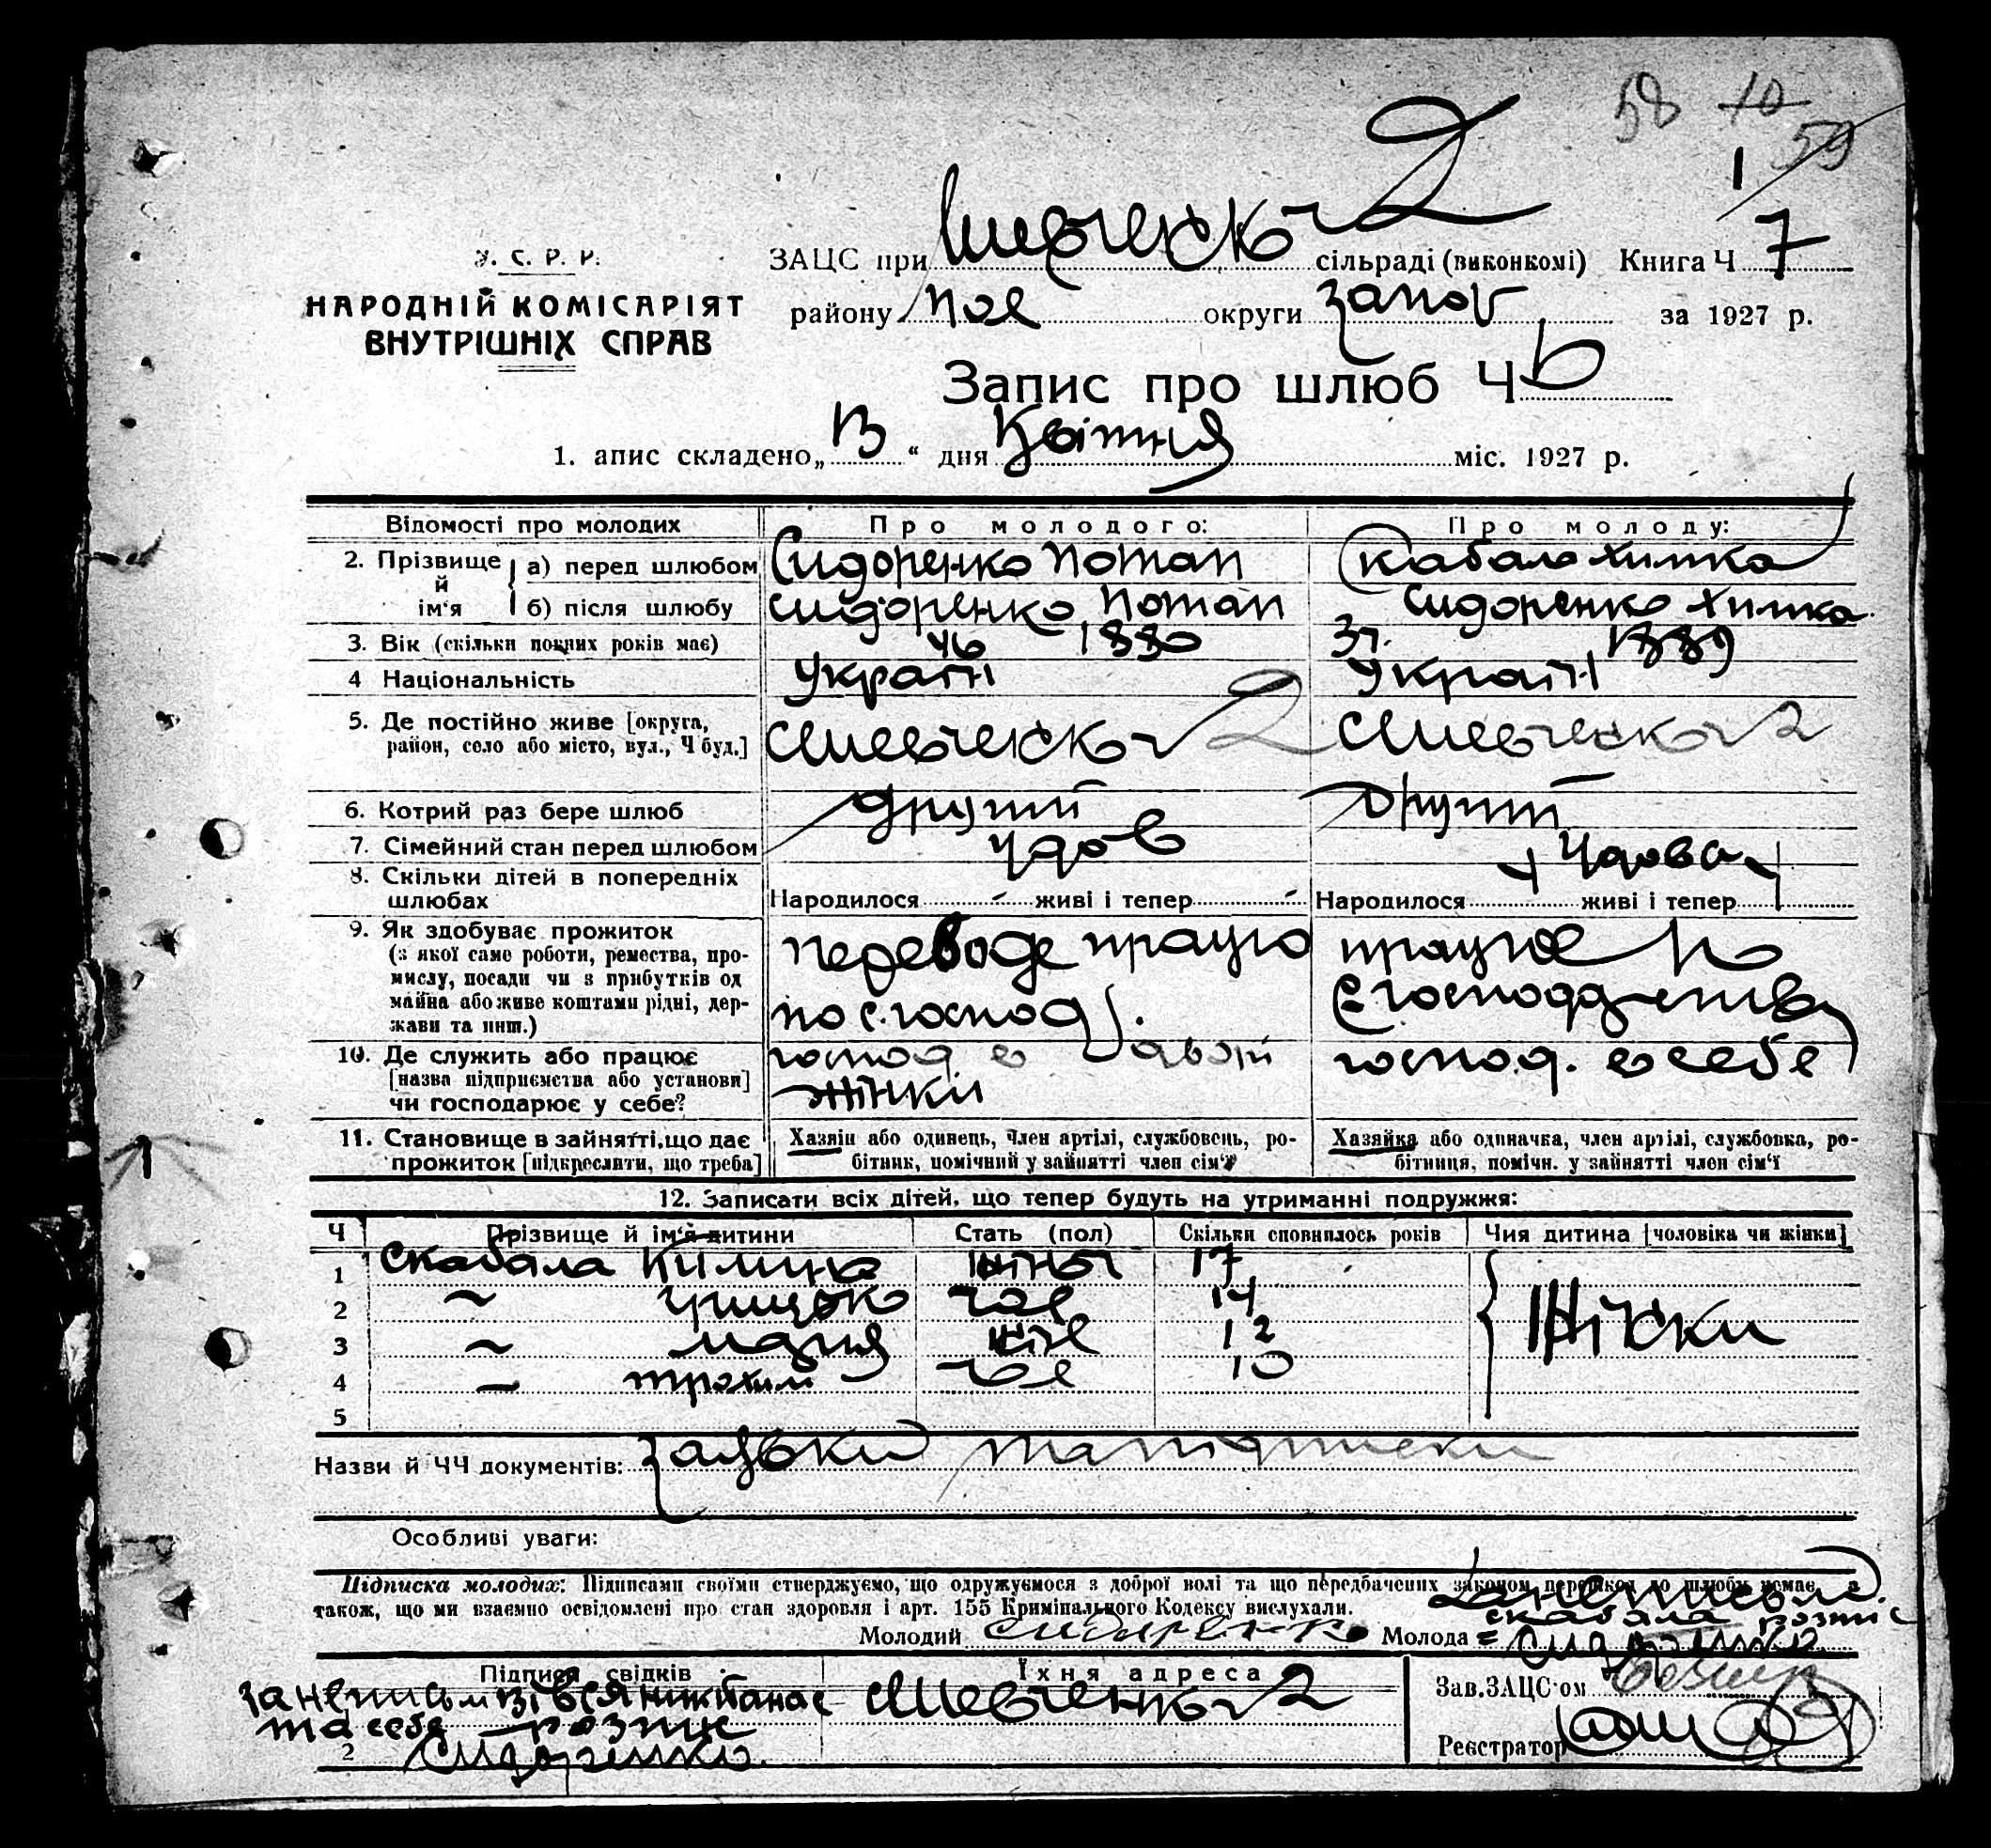 58 10
59
1
У. С. Р. Р.
НАРОДНІЙ КОМІСАРІЯТ
ВНУТРІШНІХ СПРАВ
ЗАЦС при Шевченськ 2 сільраді (виконкомі) Книга Ч 7
району Пол округи Запор за 1927 р.
Запис про шлюб Ч 6
1. апис складено „13“ дня Квітня міс. 1927 р.
Відомості про молодих Про молодого: Про молоду:
2. Прізвище й ім'я а) перед шлюбом Сидоренко Потап Скабала Химка
б) після шлюбу Сидоренко Потап Сидоренко Химка
3. Вік (скільки повних років має) 46 1880 37. 1889
4 Національність Україн Україн
5. Де постійно живе [округа,
район, село або місто, вул., Ч буд.]
6. Котрий раз бере шлюб другий другий
7. Сімейний стан перед шлюбом Удов Удова
8. Скільки дітей в попередніх
шлюбах Народилося - живі і тепер - Народилося живі і тепер
9. Як здобуває прожиток
(з якої саме роботи, ремества, про-
мислу, посади чи з прибутків од
майна або живе коштами рідні, дер-
жави та инш.)
переводе працю
по с.господ.
працює по
с господарству
10. Де служить або працює
[назва підприємства або установи]
чи господарює у себе?
господ в
жінки
господ. в себе
11. Становище в зайнятті, що дає
прожиток [підкреслити, що треба]
Хазяїн або одинець, член артілі, службовець, ро-
бітник, помічний у зайнятті член сім'ї
Хазяйка або одиначка, член артілі, службовка, ро-
бітниця, помічн. у зайнятті член сім'ї
12. Записати всіх дітей, що тепер будуть на утриманні подружжя:
Ч Прізвище й ім'я дитини Стать (пол) Скільки сповнилось років Чия дитина [чоловіка чи жінки]
1 Скабала 17
2 ~ Грицько чол 14 Жінки
3 ~ Марія жін 12
4 — Трохим чол 10
5
Назви й ЧЧ документів: заявки та підписки
Особливі уваги:
Підписка молодих: Підписами своїми стверджуємо, що одружуємося з доброї волі та що передбачених законом перешкод до шлюбу немає, а
також, що ми взаємно освідомлені про стан здоровля і арт. 155 Кримінального Кодексу вислухали.
Молодий Сидоренко Молода
скабала розпис
Сидоренко
Підписи свідків Їхня адреса
та себе розпис
2 Сидоренко.
Зав. ЗАЦС'ом
Реєстратор